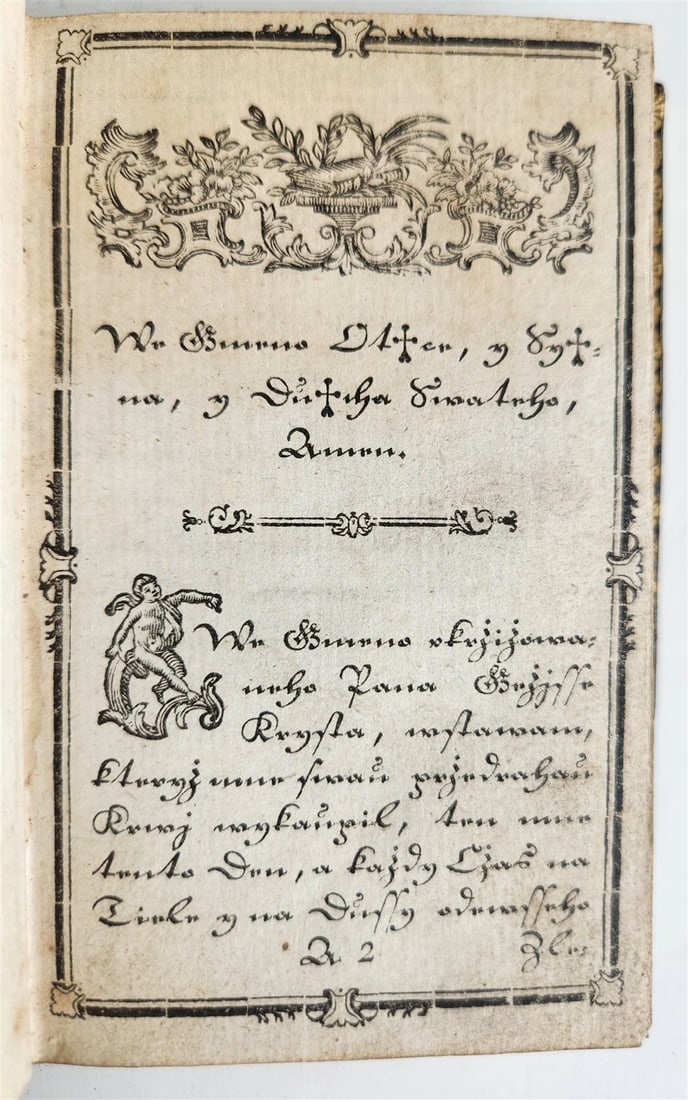 We Gmeno Ot✝ce, y Sy✝-
na, y Du✝cha Swateho,
Amen.
We Gmeno vkrżiżowa-
neho Pana Geżjsse
Krysta, wstawam,
kteryż mne swau przedrahau
Krwj wykaupil, ten mne
tento Den, a każdy Czas na
Tiele y na Dussy odewsseho
A 2 Zle-